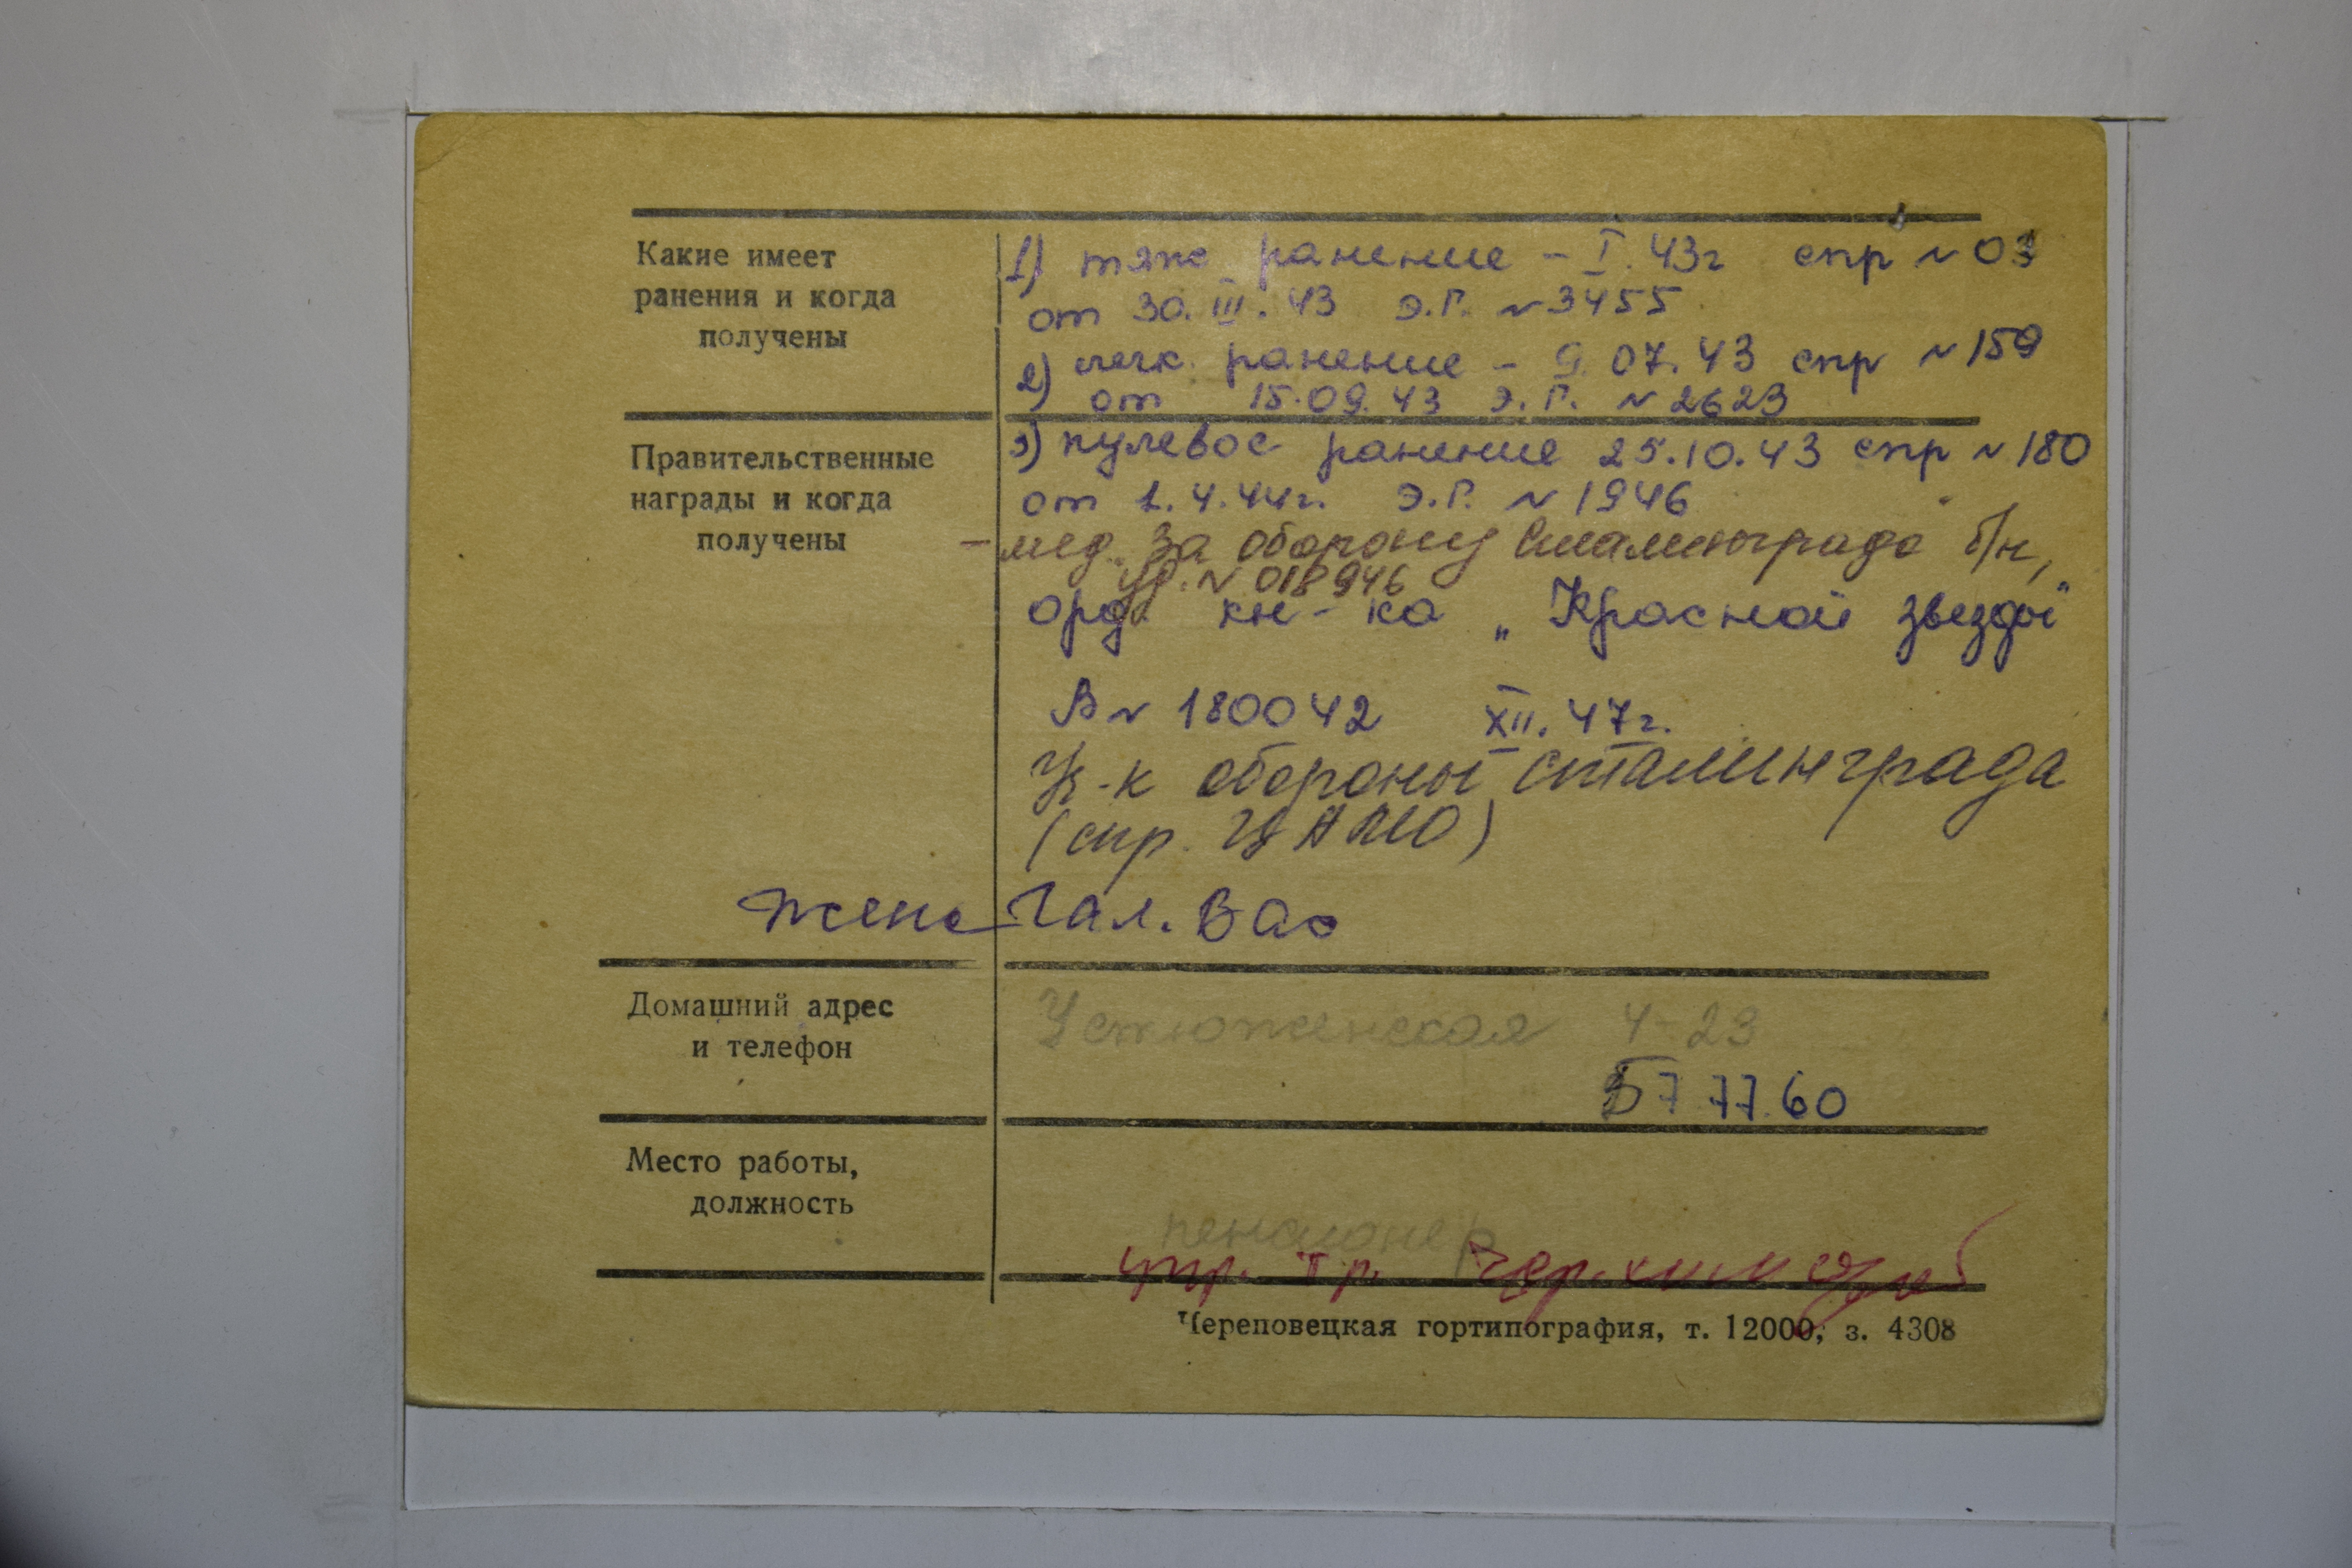 Какие имеет
ранения и когда
получены
1) тяж ранение - I. 43г спр № 03
от 30. III. 43 Э.Г. № 3455
2) легк. ранение - 9.07.43 спр № 159
от 15.09.43 Э.Г. № 2623
Правительственные
награды и когда
получены
3) пулевое ранение 25.10.43 спр № 180
от 1.4.44г. Э.Г. № 1946
- мед. "За оборону Сталинграда" б/н,
уд. № 018946
орд. кн-ка „Красной звезды"
В № 180042 XII. 47г.
Уч-к обороны Сталинграда
(спр. ЦАМО)
жена Гал. Вас
Домашний адрес
и телефон
Устюженская 4-23
7 77.60
Место работы,
должность
пенсионер
тр.
Череповецкая гортипография, т. 12000, з. 4308